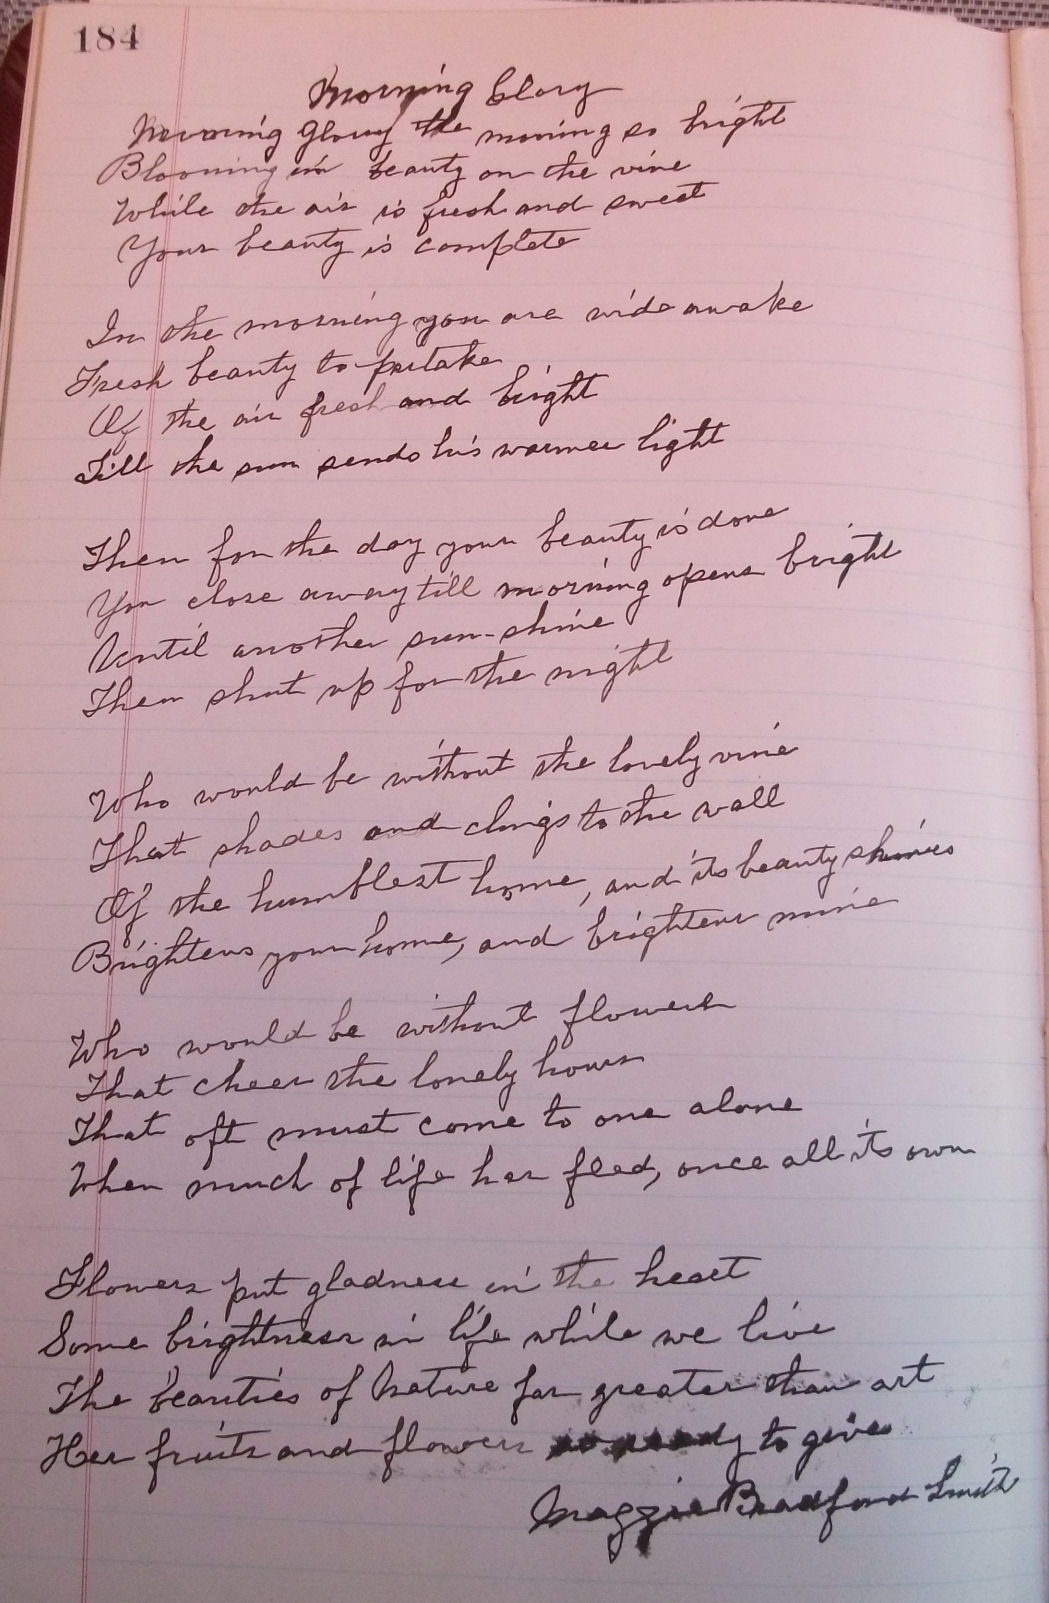 184
Morning Glory
Morning Glory the morning so bright
Blooming in beauty on the vine
While the air is fresh and sweet
Your beauty is complete
In the morning you are wide awake
Fresh beauty to partake
Of the air fresh and bright
Till the sun sends his warmer light
Then for the day your beauty is done
You close away till morning opens bright
Until another sun-shine
Then shut up for the night
Who would be without the lovely vine
That shades and clings to the wall
Of the humblest home, and its beauty shines
Brightens your home, and brightens mine
Who would be without flowers
That cheer the lonely hours
That oft must come to one alone
When much of life has fled, once all its own
Flowers put gladness in the heart
Some brightness in life while we live
The beauties of Nature far greater than art
Her fruits and flowers so ready to give
Maggie Bradford Smith